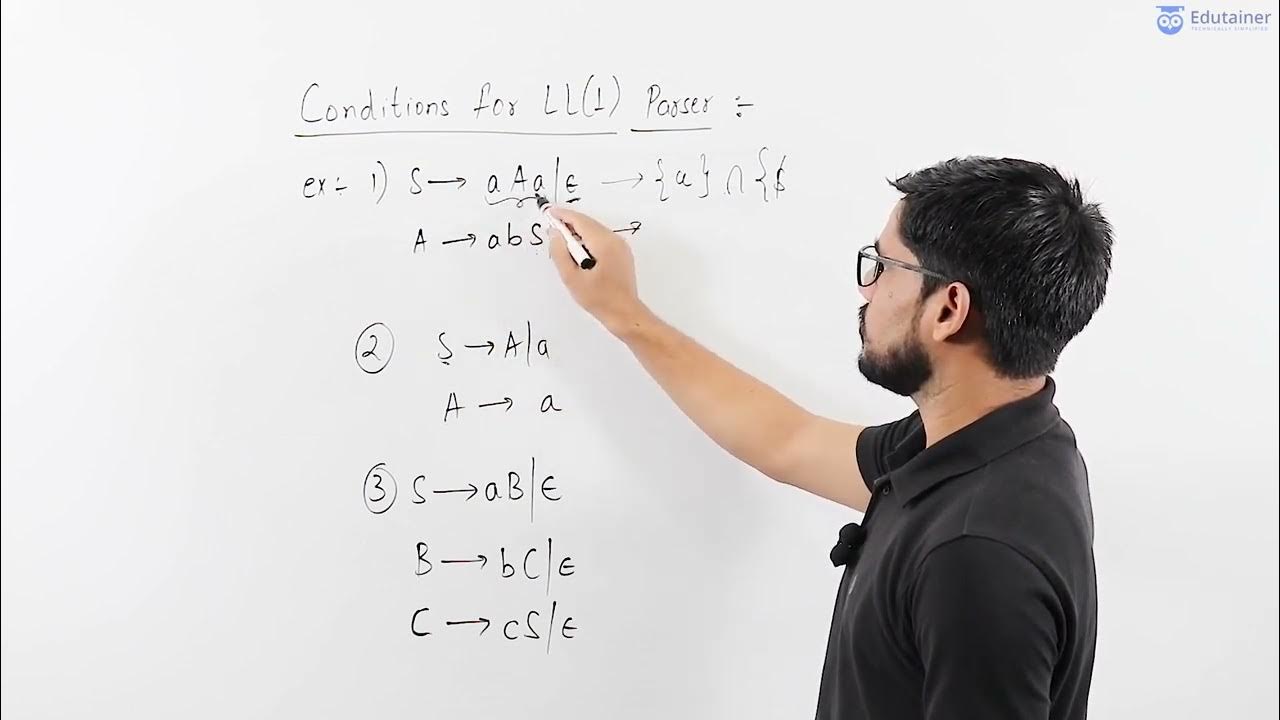 Edutainer
TECHNICALLY SIMPLIFIED
Conditions for LL(1) Parser :-
ex:- 1) S → aAa|ε → {a} ∩ {$
A → abS| →
② S → A|a
A → a
③ S → aB|ε
B → bC|ε
C → cS|ε